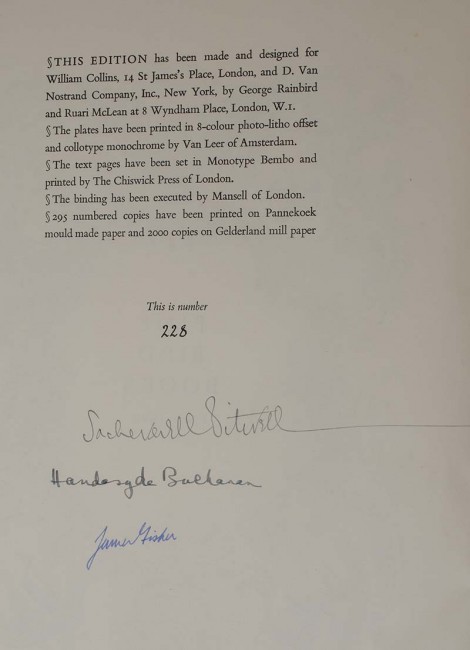 §THIS EDITION has been made and designed for
William Collins, 14 St James's Place, London, and D. Van
Nostrand Company, Inc., New York, by George Rainbird
and Ruari McLean at 8 Wyndham Place, London, W.1.
§The plates have been printed in 8-colour photo-litho offset
and collotype monochrome by Van Leer of Amsterdam.
§The text pages have been set in Monotype Bembo and
printed by The Chiswick Press of London.
§The binding has been executed by Mansell of London.
§295 numbered copies have been printed on Pannekoek
mould made paper and 2000 copies on Gelderland mill paper
This is number
228
Sacheverell Sitwell
Handasyde Buchanan
James Fisher